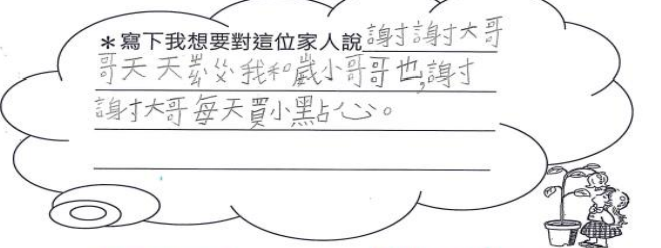 ＊寫下我想要對這位家人說謝謝大哥
哥天天 我和 小哥哥也,謝
謝大哥每天買小點心。